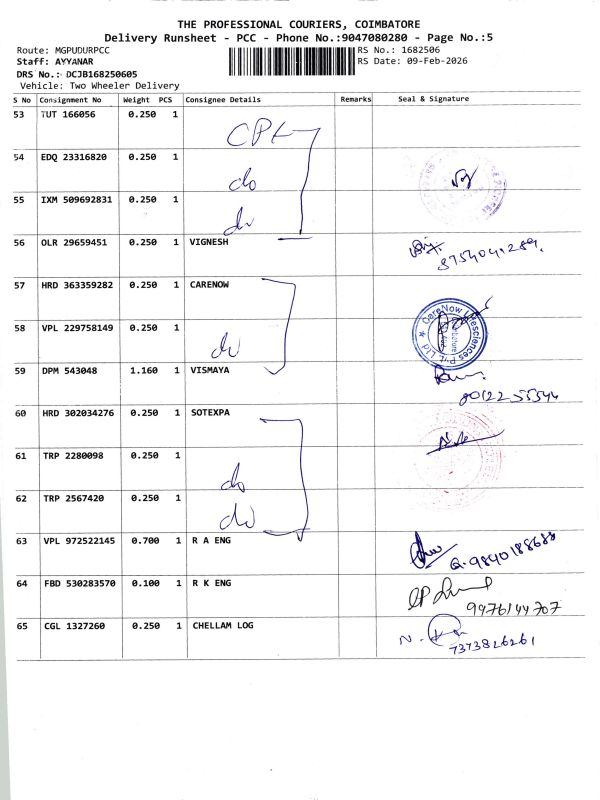 THE PROFESSIONAL COURIERS, COIMBATORE
Delivery Runsheet - PCC - Phone No.:9047080280 - Page No.:5
Route: MGPUDURPCC
RS No.: 1682506
Staff: AYYANAR
RS Date: 09-Feb-2026
DRS No.: DCJB168250605
Vehicle: Two Wheeler Delivery
S No Consignment No Weight PCS Consignee Details Remarks Seal & Signature
53 TUT 166056 0.250 1
54 EDQ 23316820 0.250 1 do
55 IXM 509692831 0.250 1 do
56 OLR 29659451 0.250 1 VIGNESH
8754041289.
57 HRD 363359282 0.250 1 CARENOW
58 VPL 229758149 0.250 1 do
CareNow Lifesciences Pvt. Ltd
59 DPM 543048 1.160 1 VISMAYA
8012255544
60 HRD 302034276 0.250 1 SOTEXPA
61 TRP 2280098 0.250 1 do
62 TRP 2567420 0.250 1 do
63 VPL 972522145 0.700 1 R A ENG
9840188688
64 FBD 530283570 0.100 1 R K ENG
9976144707
65 CGL 1327260 0.250 1 CHELLAM LOG
7373826261